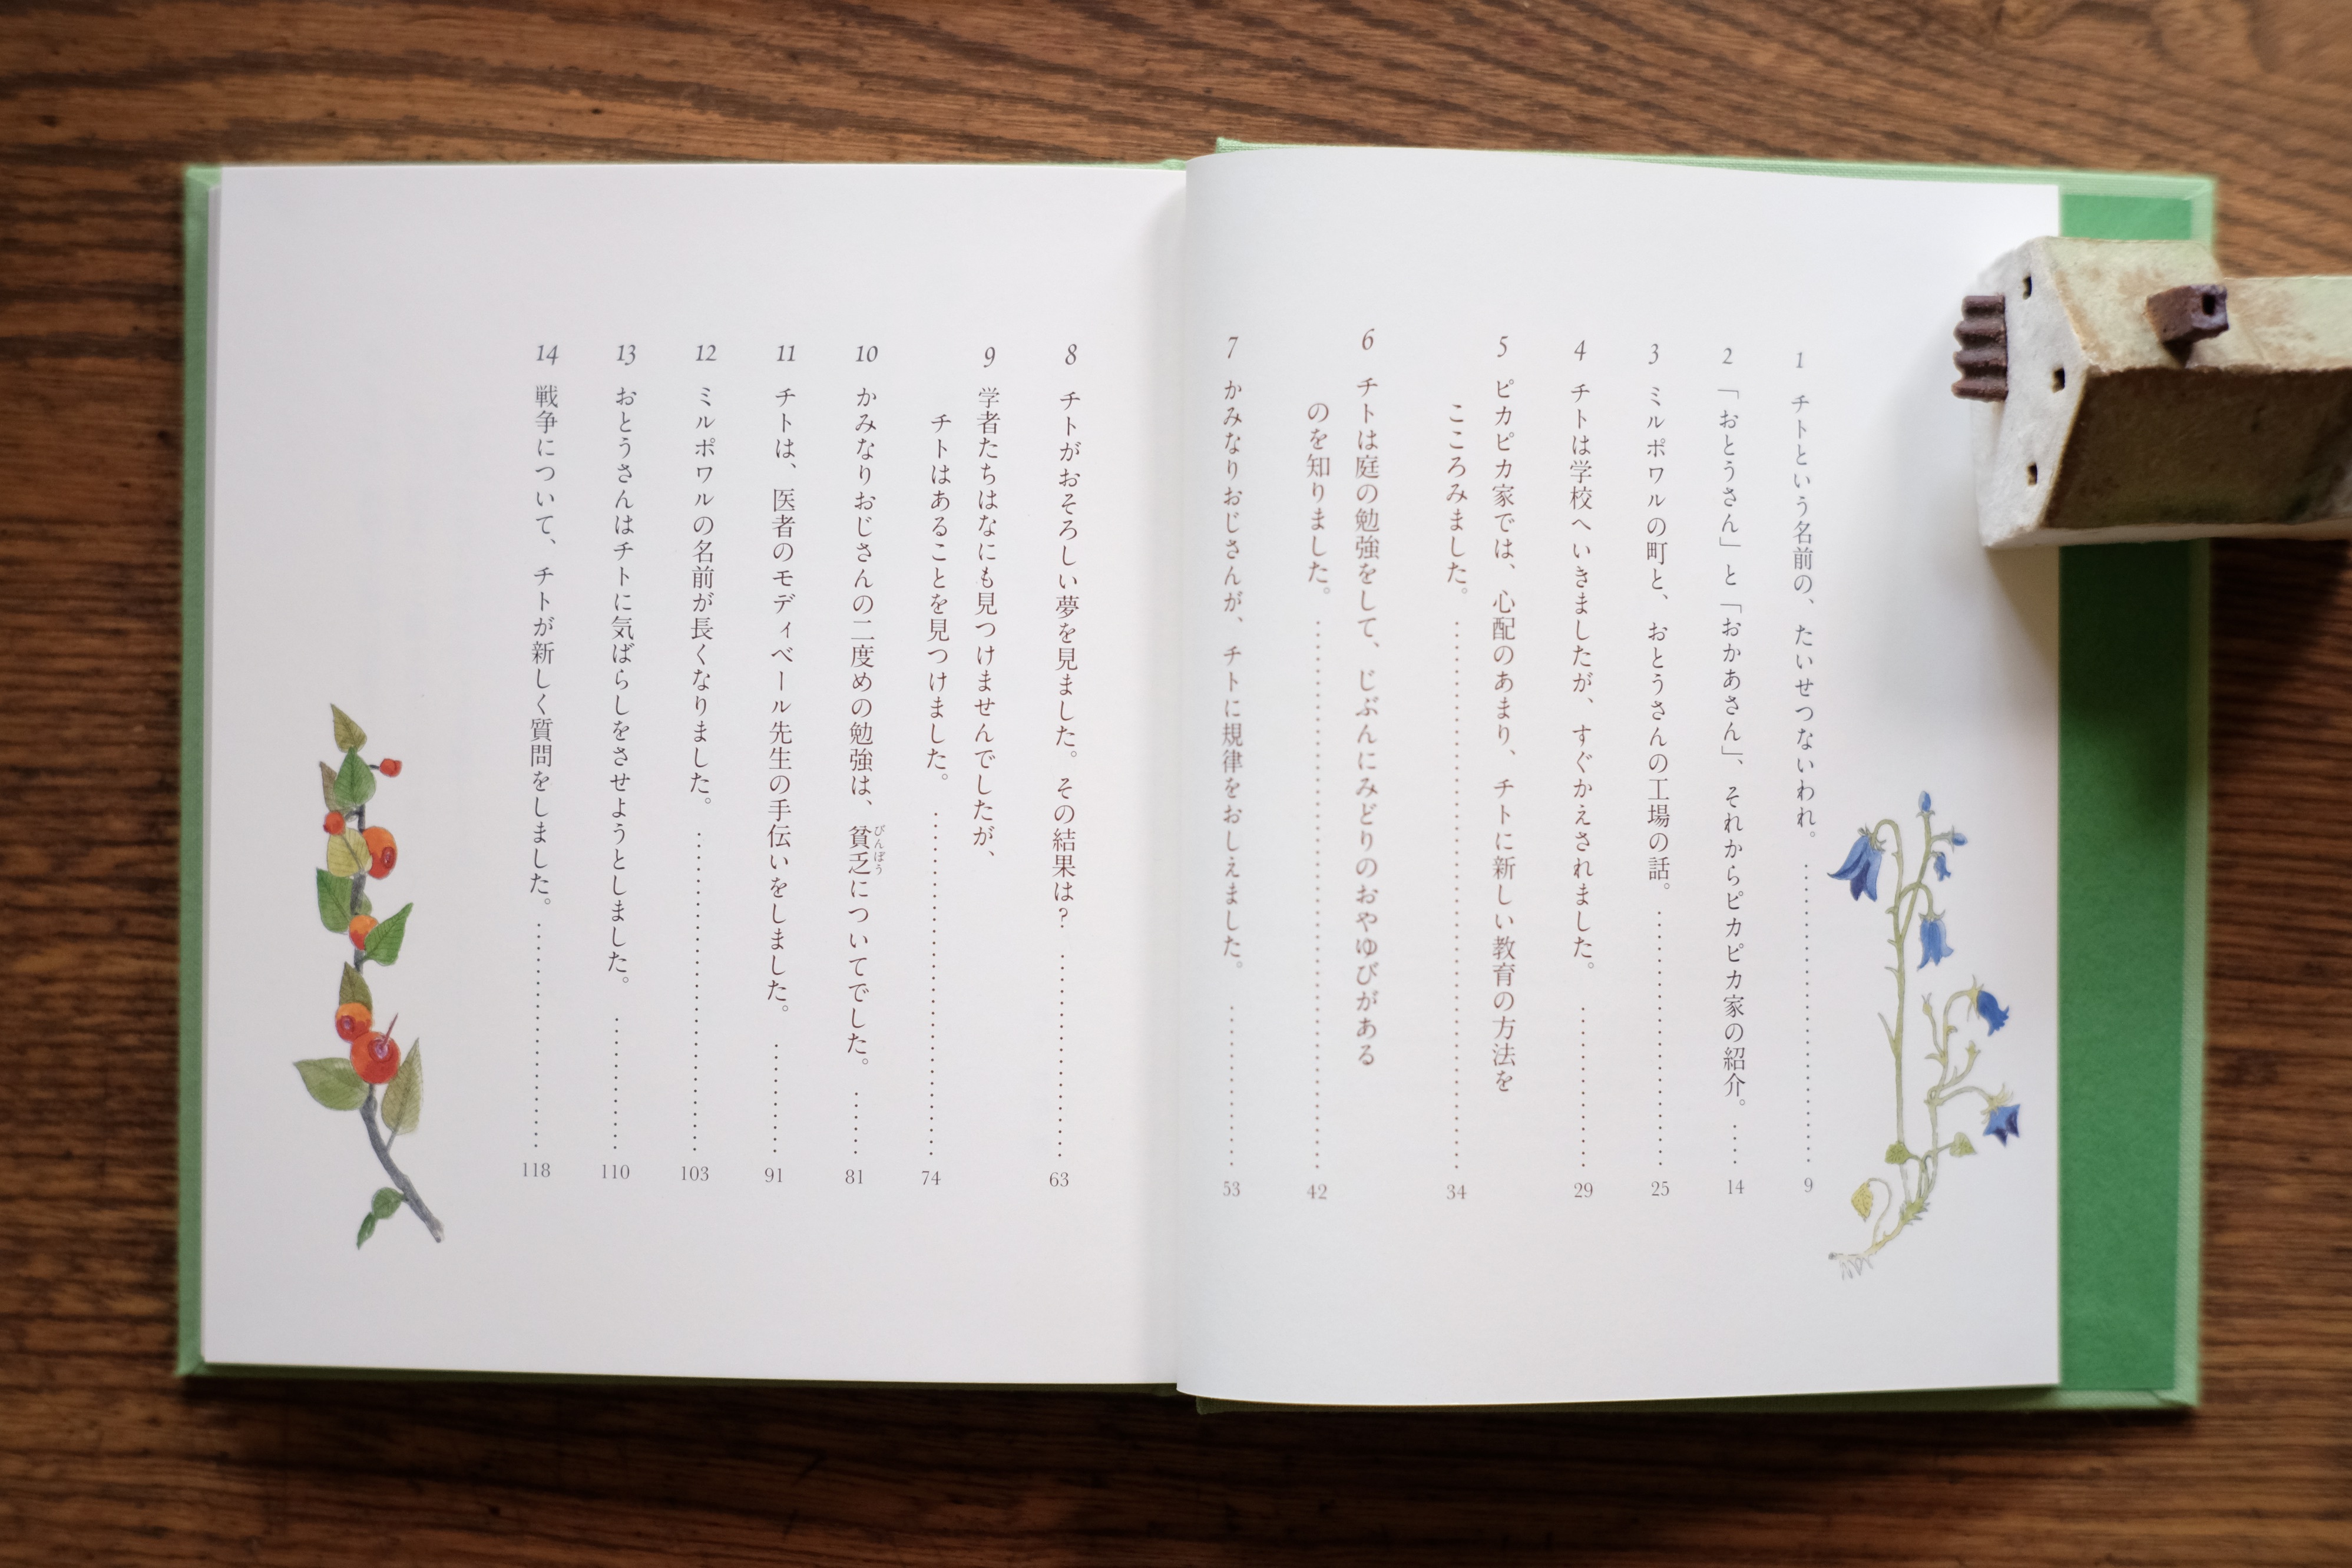 1 チトという名前の、たいせつないわれ。 9
2 「おとうさん」と「おかあさん」、それからピカピカ家の紹介。 14
3 ミルポワルの町と、おとうさんの工場の話。 25
4 チトは学校へいきましたが、すぐかえされました。 29
5 ピカピカ家では、心配のあまり、チトに新しい教育の方法を
こころみました。 34
6 チトは庭の勉強をして、じぶんにみどりのおやゆびがある
のを知りました。 42
7 かみなりおじさんが、チトに規律をおしえました。 53
8 チトがおそろしい夢を見ました。その結果は? 63
9 学者たちはなにも見つけませんでしたが、
チトはあることを見つけました。 74
10 かみなりおじさんの二度めの勉強は、貧乏についてでした。 81
びんぼう
11 チトは、医者のモディベール先生の手伝いをしました。 91
12 ミルポワルの名前が長くなりました。 103
13 おとうさんはチトに気ばらしをさせようとしました。 110
14 戦争について、チトが新しく質問をしました。 118